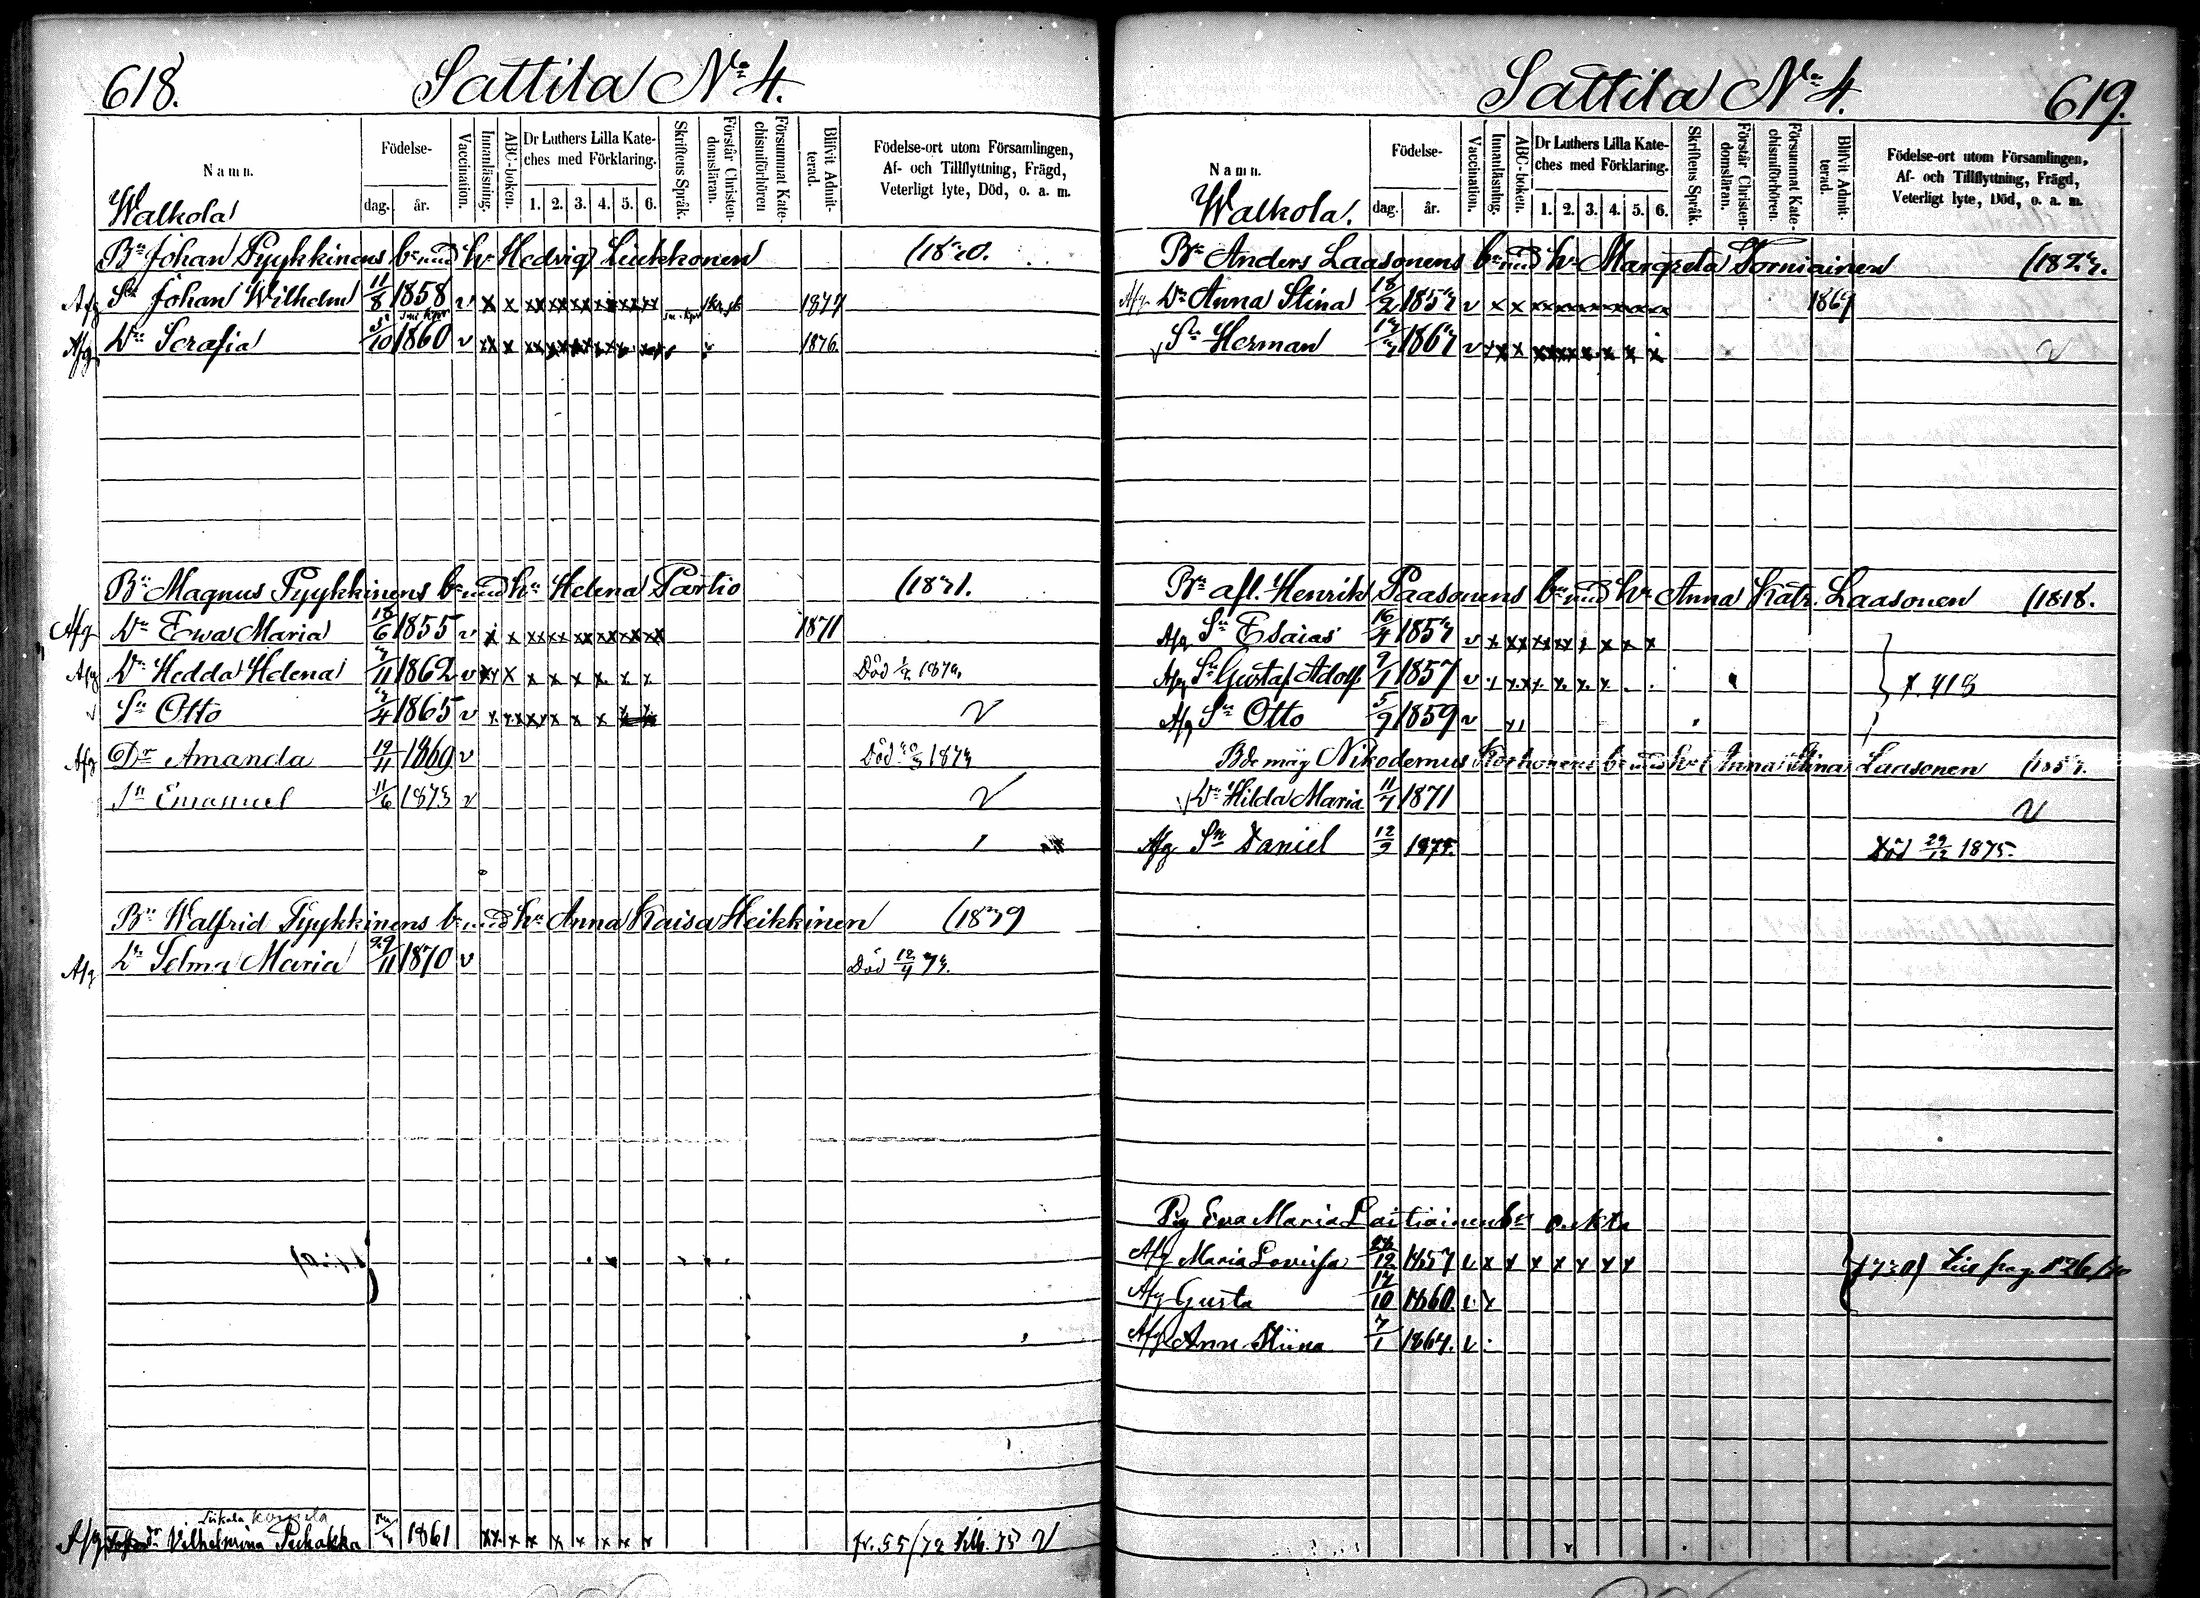 618.
Sattila No 4.
Namn.
Födelse-
dag. år.
Vaccination.
Innanläsning.
ABC-boken.
Dr Luthers Lilla Kate-
ches med Förklaring.
1. 2. 3. 4. 5. 6.
Skriftens Språk.
Förstår Christen-
domsläran.
Försummat Kate-
chismiförhören
Blifvit Admit-
terad.
Födelse-ort utom Församlingen,
Af- och Tillflyttning, Frägd,
Veterligt lyte, Död, o. a. m.
Walkola
Bn Johan Pyykkinens bn med hn Hedvig Liukkonen
Afg Sn Johan Wilhelm 11/8 1858 v x x xx xx xx xx xx xx 1877
Afg Dr Serafia /10 1860 v xx x 1876.
Bn Magnus Pyykkinens bn med hn Helena Partio (1831.
Afg Dr Ewa Maria 18/6 1855 v x x xx xx xx xx xx xx 1871
Afg Dr Hedda Helena /11 1862 v x x x x x x x Död
Sn Otto /4 1865 v x xx xx x x x
Afg Dr Amanda 19/11 1869 v Död 1873
Sn Emanuel 11/6 1873 v
Bn Walfrid Pyykkinens bn med hn Anna Kaisa Heikkinen (1839
Afg Dr Selma Maria 29/11 1870 v Död 12/4 73.
Afg Dr Vilhelmina Puhakka 1861 xx x x x x x x fr. 55/72
619.
Sattila No 4.
Namn.
Födelse-
dag. år.
Vaccination.
Innanläsning.
ABC-boken.
Dr Luthers Lilla Kate-
ches med Förklaring.
1. 2. 3. 4. 5. 6.
Skriftens Språk.
Förstår Christen-
domsläran.
Försummat Kate-
chismiförhören.
Blifvit Admit-
terad.
Födelse-ort utom Församlingen,
Af- och Tillflyttning, Frägd,
Veterligt lyte, Död, o. a. m.
Walkola.
Bn Anders Laasonens bn med hn Margreta Torniainen
Afg Dr Anna Stina 18/2 1853 v x x xx xx xx xx xx xx 1869
v Sn Herman 1863 v xx x xx xx x x x x
Bn afl. Henrik Paasonens bn med hn Anna Katr. Laasonen (1818.
Afg Sn Esaias 16/4 1853 v x xx xx xx x x x x
Afg Sn Gustaf Adolf 9/1 1857 v x xx x x x x
Afg Sn Otto 5/9 1859 v
Bde måg Nikodemus Korhonens bn med hn Anna Stina Laasonen
v Dr Hilda Maria 11/7 1871
Afg Sn Daniel 12/9 1875. Död 29/12 1875.
Pig Eva Maria Laitiainens bn o. äkta
Afg Maria Lovisa /12 1857 v x x x x x x x
Afg Gusta 17/10 1860. v x
Afg Ann Stiina 7/1 1864. v